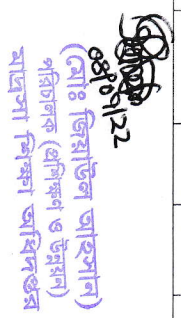 08/09/22
(মোঃ জিয়াউল আহসান)
পরিচালক (প্রশিক্ষণ ও উন্নয়ন)
মাদ্রাসা শিক্ষা অধিদপ্তর